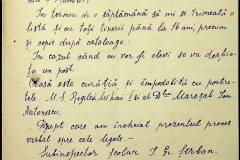 În termen de o săptămână să mi se trimeată o
listă și cu toți tinerii până la 16 ani, precum
și copie după cataloage.
În cazul când nu vor fi elevi se va desfiin-
ța un post.
Clasa este curățică și împodobită cu portre-
tele M. S. Regelui Mihai I și al Dlui Mareșal Ion
Antonescu.
Drept care am încheiat prezentul proces
verbal spre cele legale.—
Subinspector școlar I. Gr. Șerban.